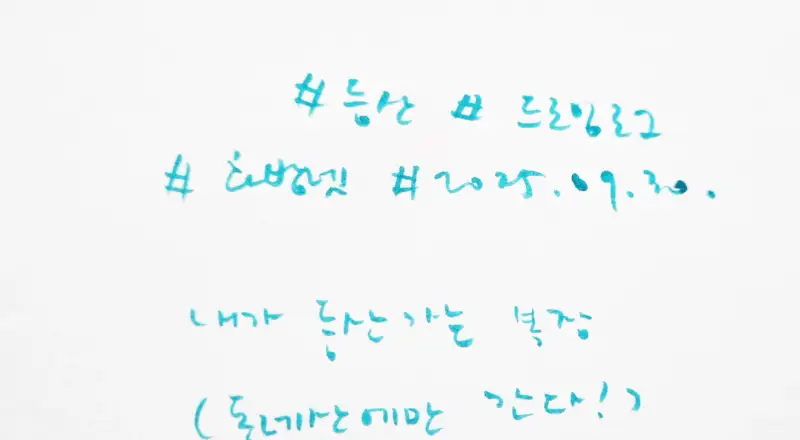 #등산 #드로잉로그
# #2025.09.30.
내가 등산 가는 복장
(동네산에만 간다!)